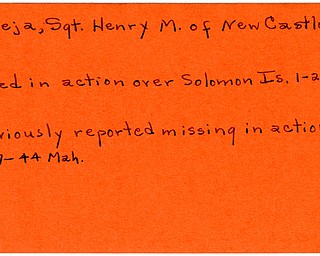 eja, Sgt. Henry M. of New Castle
ed in action over Solomon Is. 1-2
viously reported missing in action
9-44 Mah.